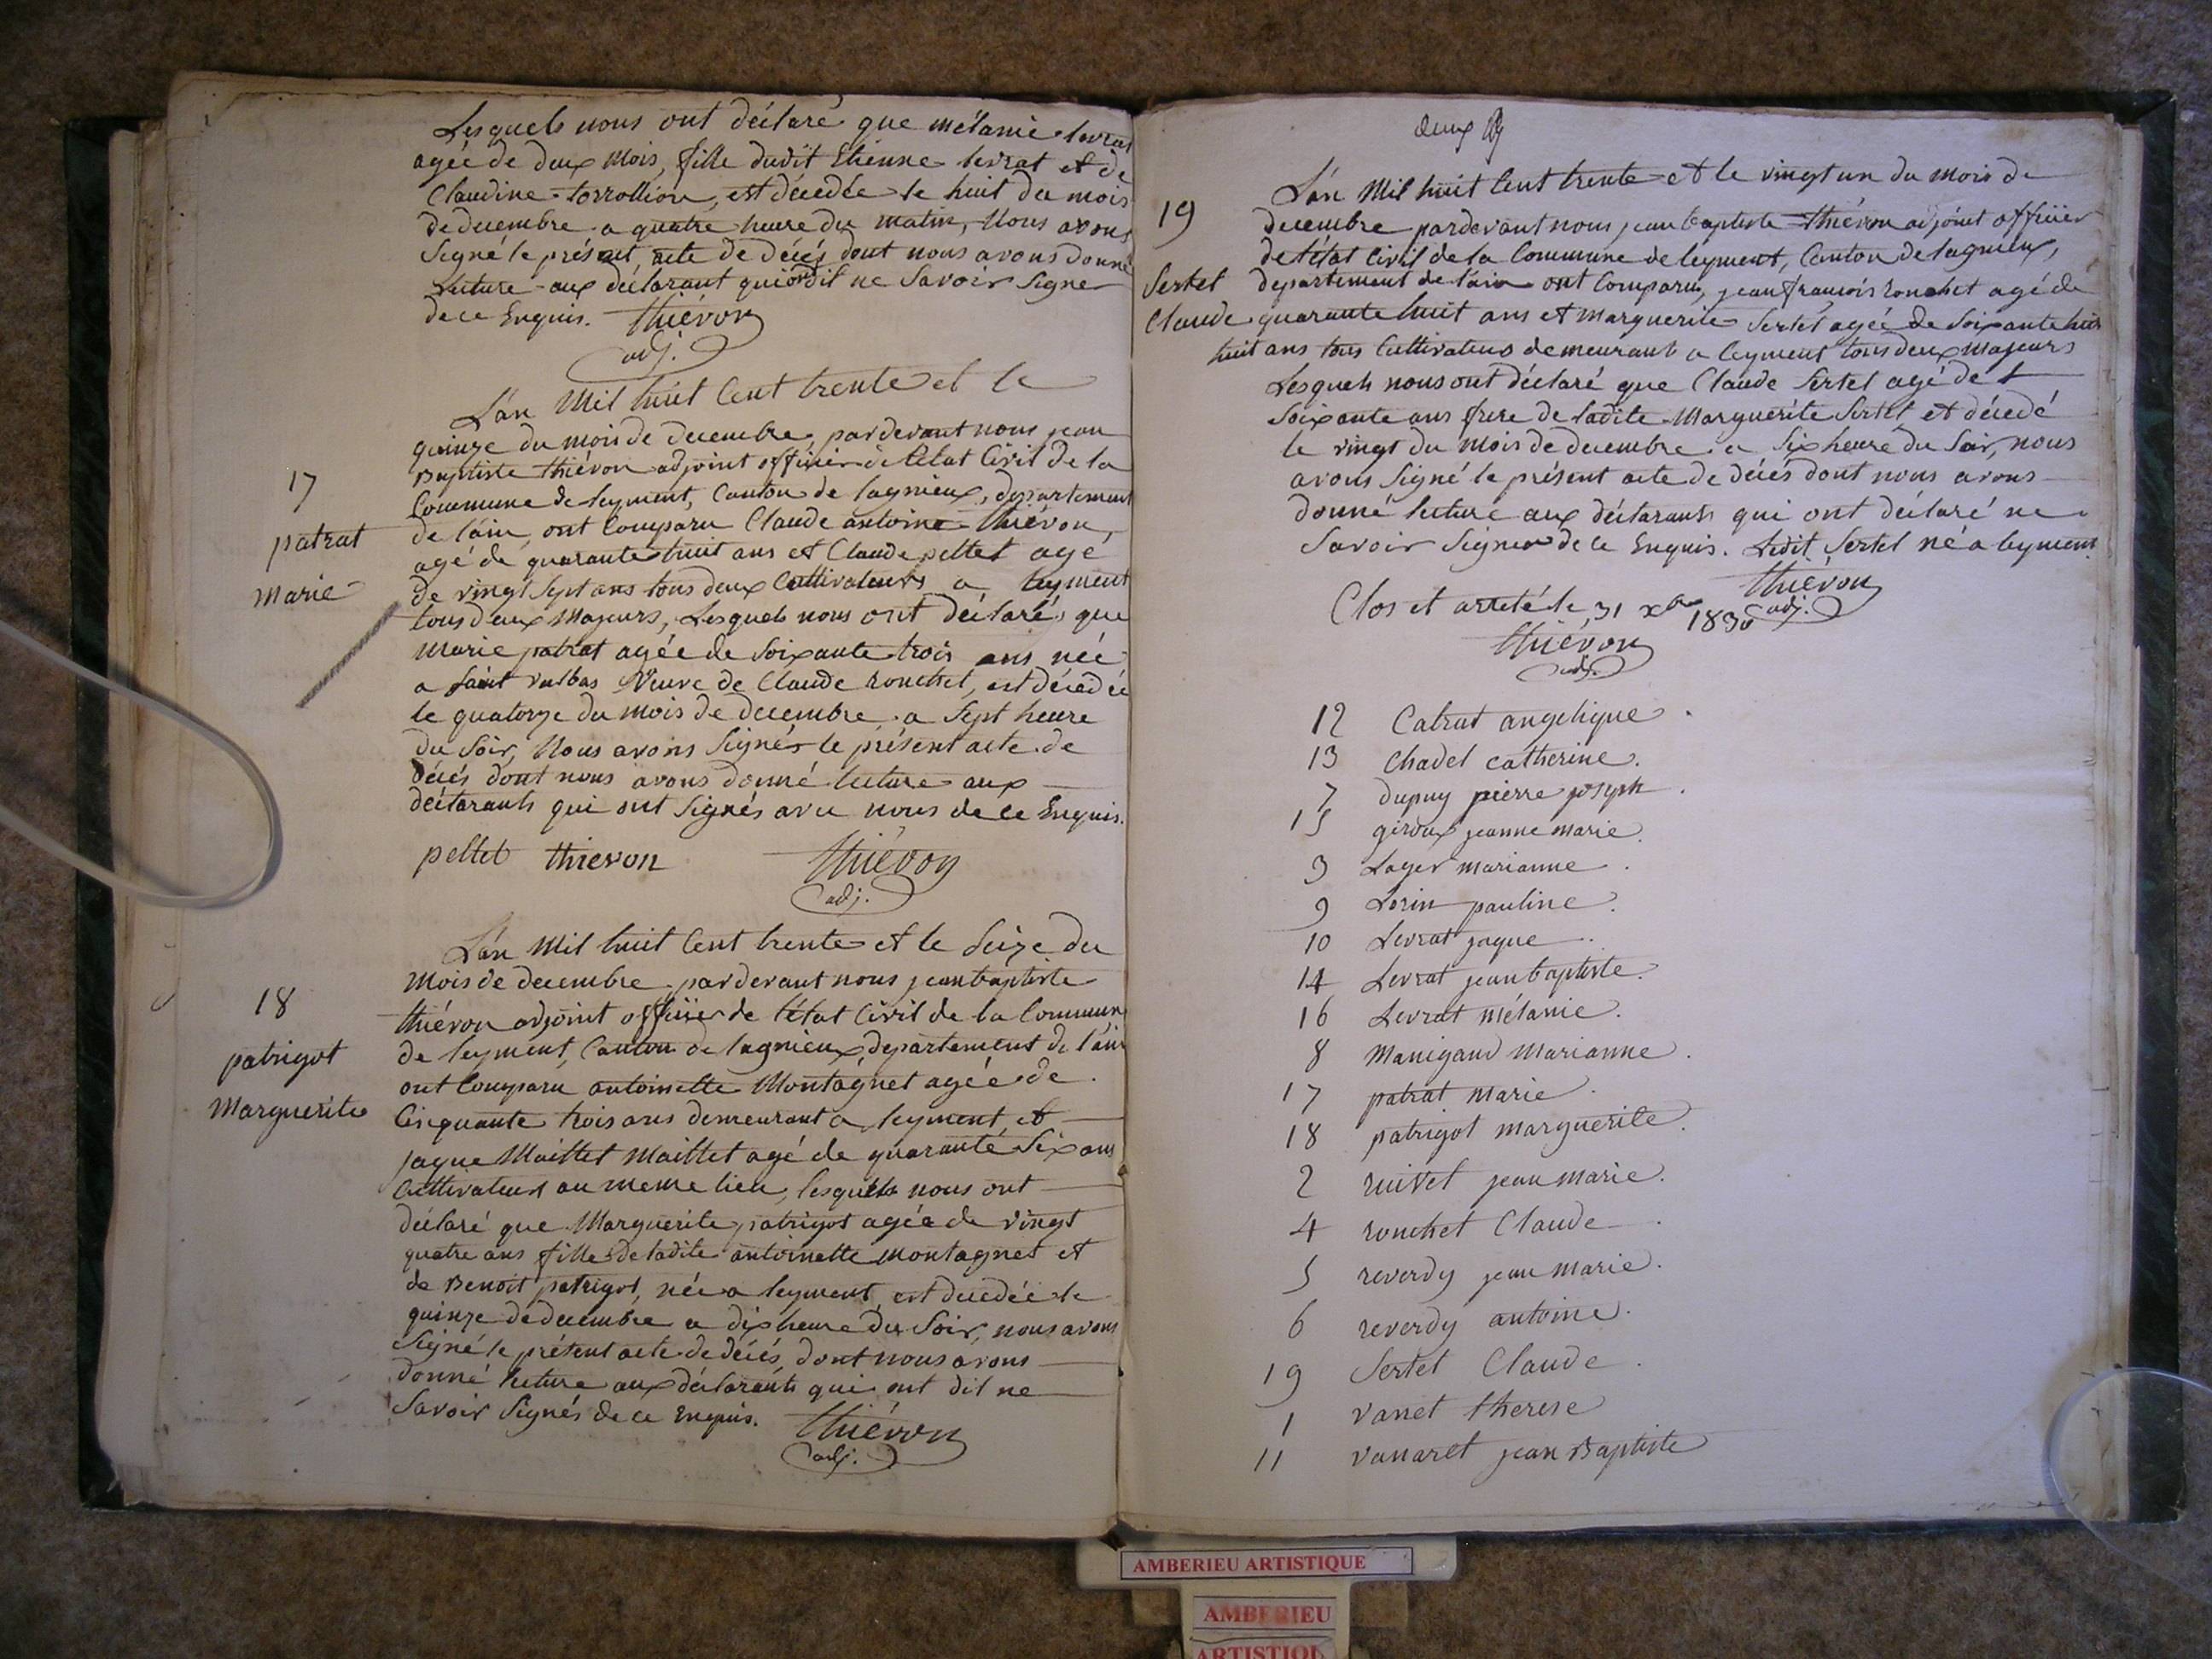 Lesquels nous ont déclaré que mélanie levrat
agée de deux mois, fille dudit Etienne levrat et de
Claudine torrollion, est décédée le huit du mois
de decembre a quatre heure du matin, Nous avons
Signé le présent acte de décés dont nous avons donné
lecture aux déclarant qui ont dit ne Savoir Signer
de ce Enquis. Thiévon
adj.
L'án Mil huit Cent trente et le
quinze du mois de decembre, pardevant nous jean
Baptiste thiévon adjoint officier de l'état Civil de la
17
Commune de leyment, Canton de lagnieux, departement
patrat
de l'ain, ont Comparu Claude antoine Thiévon,
agé de quarante huit ans et Claude pellet agé
Marie
de vingt sept ans tous deux Cultivateurs a leyment
tous deux Majeurs, Lesquels nous ont déclarés que
Marie patrat agée de Soixante trois ans née
a Saint vulbas Veuve de Claude ronchet, est décédée
le quatorze du mois de decembre a Sept heure
du Soir, Nous avons Signés le présent acte de
décés dont nous avons donné lecture aux
déclarants qui ont Signés avec nous de ce Enquis.
pellet thievon Thiévon
adj.
L'án Mil huit Cent trente et le Seize du
Mois de decembre pardevant nous jean baptiste
18
thiévon adjoint officier de l'état Civil de la Commune
patrigot
de leyment, Canton de lagnieux, departement de l'ain
ont Comparu antoinette Montagnet agée de
Marguerite
Cinquante trois ans demeurant a leyment, et
jaque Maillet Maillet agé de quarante Six ans
Cultivateur au meme lieu, lesquels nous ont
déclaré que Marguerite patrigot agée de vingt
quatre ans fille de ladite antoinette Montagnet et
de Benoit patrigot, née a leyment, est decedée le
quinze de decembre a dix heure du Soir, nous avons
Signé le présent acte de décés, dont nous avons
donné lecture aux déclarants qui ont dit ne
Savoir Signés de ce Enquis. Thiévon
adj.
deux
L'án Mil huit Cent trente et le vingt un du mois de
19
decembre pardevant nous jean baptiste thiévon adjoint officier
de l'état Civil de la Commune de leyment, Canton de lagnieux,
Sertet
departement de l'ain ont Comparu, jean françois ronchet agé de
Claude
quarante huit ans et Marguerite Sertet agée de Soixante huit
huit ans tous Cultivateurs demeurant a leyment tous deux Majeurs
Lesquels nous ont déclaré que Claude Sertet agé de
Soixante ans frere de ladite Marguerite Sertet, et décedé
le vingt du Mois de decembre a Six heure du Soir, nous
avons Signé le présent acte de décés dont nous avons
donné lecture aux déclarants qui ont déclaré ne
Savoir Signer de ce Enquis. Ledit Sertet né a leyment
Thiévon
adj.
Clos et arreté le 31 xbre 1830
Thiévon
adj.
12 Catrat angelique
13 Chadel catherine.
7 dupuy pierre joseph.
15 giroux jeanne marie.
3 Layer marianne.
9 Lorin pauline.
10 Levrat jaque.
14 Levrat jean baptiste.
16 Levrat mélanie.
8 Manigand Marianne.
17 patrat marie.
18 patrigot marguerite.
2 ruivet jean marie.
4 ronchet Claude.
5 reverdy jean Marie.
6 reverdy antoine.
19 Sertet Claude.
1 vanet therese
11 vanaret jean Baptiste
AMBERIEU ARTISTIQUE
AMBERIEU